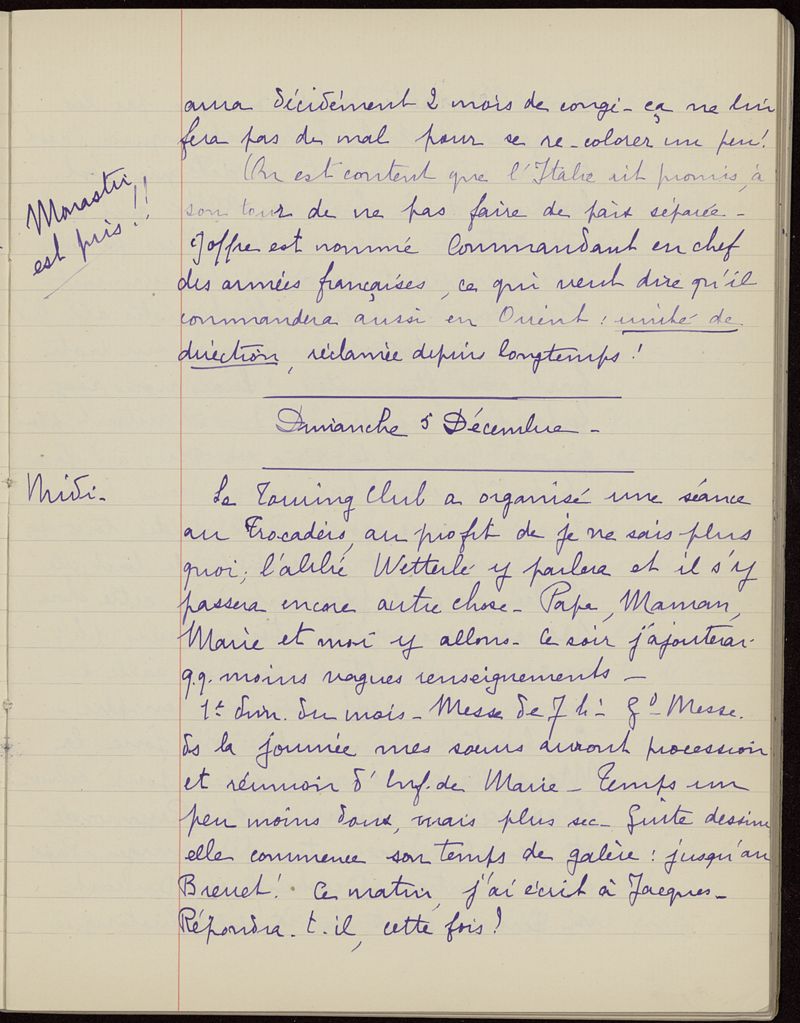 aura décidément 2 mois de congé - ça ne lui
fera pas de mal pour se re-colorer un peu!
On est content que l'Italie ait promis, à
son tour de ne pas faire de paix séparée -
Monastir
est pris!!
Joffre est nommé Commandant en chef
des armées françaises, ce qui veut dire qu'il
commandera aussi en Orient : unité de
direction, réclamée depuis longtemps!
Dimanche 5 Décembre -
Midi -
Le Touring Club a organisé une séance
au Trocadéro, au profit de je ne sais plus
quoi; l'abbé Wetterlé y parlera et il s'y
passera encore autre chose - Papa, Maman,
Marie et moi y allons - Ce soir j'ajouterai
q.q. moins vagues renseignements -
1er dim. du mois - Messe de 7h - Gd Messe.
ds la journée mes sœurs auront procession
et réunion d'Enf. de Marie - Temps un
peu moins doux, mais plus sec - Guite dessine
elle commence son temps de galère : jusqu'au
Brevet! Ce matin, j'ai écrit à Jacques -
Répondra-t-il, cette fois?